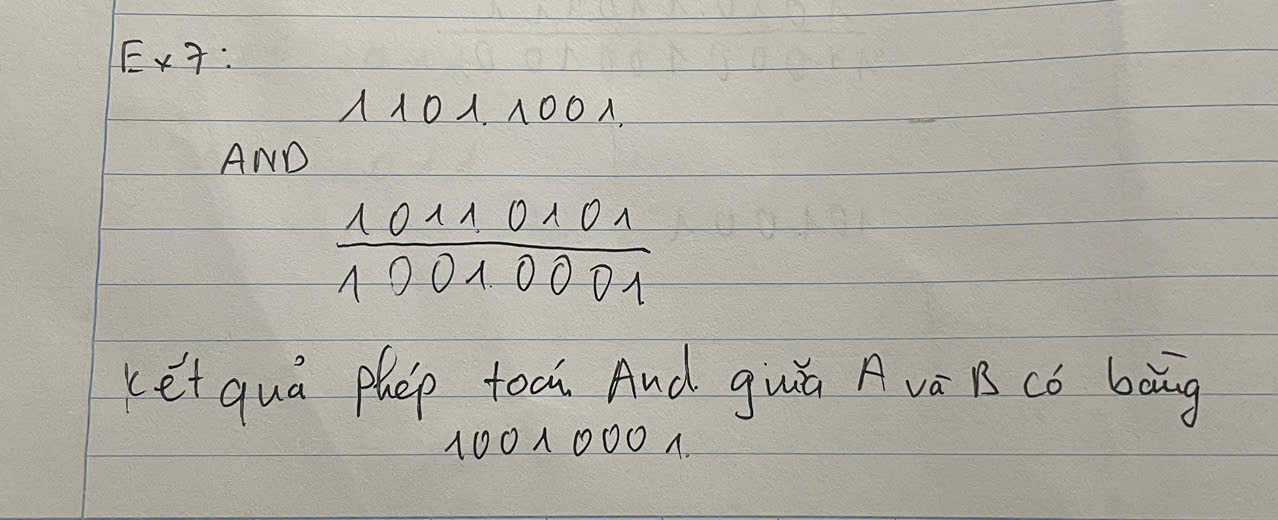 Ex7:
1101.1001.
AND
1011.0101
1001.0001
Kết quả phép toán And giữa A và B có bằng
10010001.